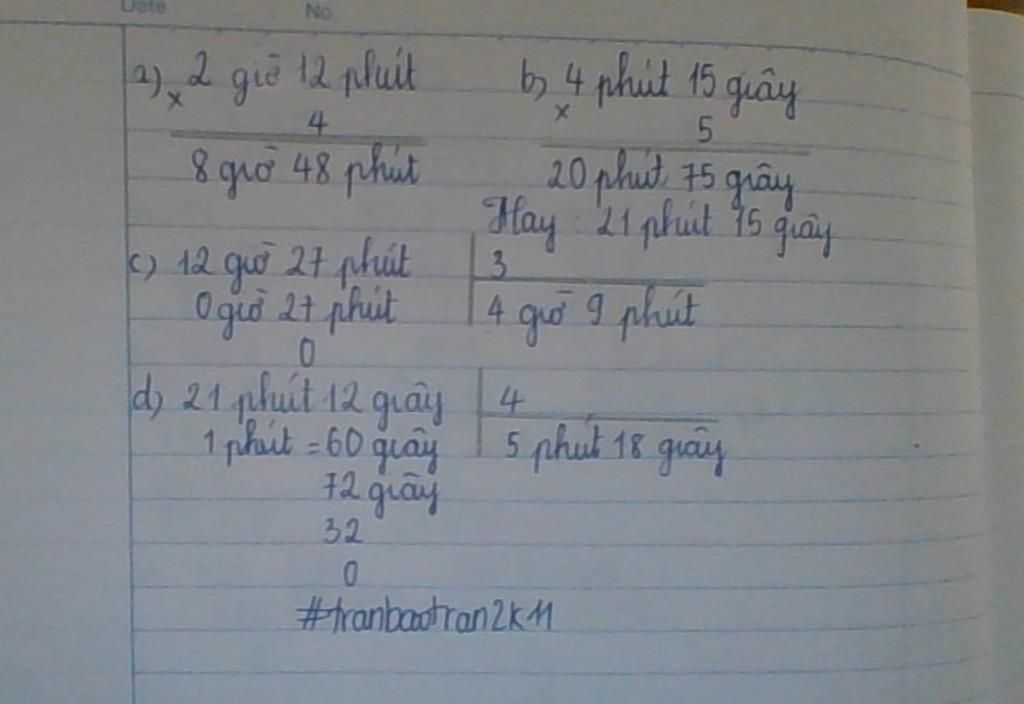 Date No
a) 2 giờ 12 phút b) 4 phút 15 giây
x 4 x 5
8 giờ 48 phút 20 phút 75 giây
Hay : 21 phút 15 giây
c) 12 giờ 27 phút 3
0 giờ 27 phút 4 giờ 9 phút
0
d) 21 phút 12 giây 4
1 phút = 60 giây 5 phút 18 giây
72 giây
32
0
#tranbaotran2k11